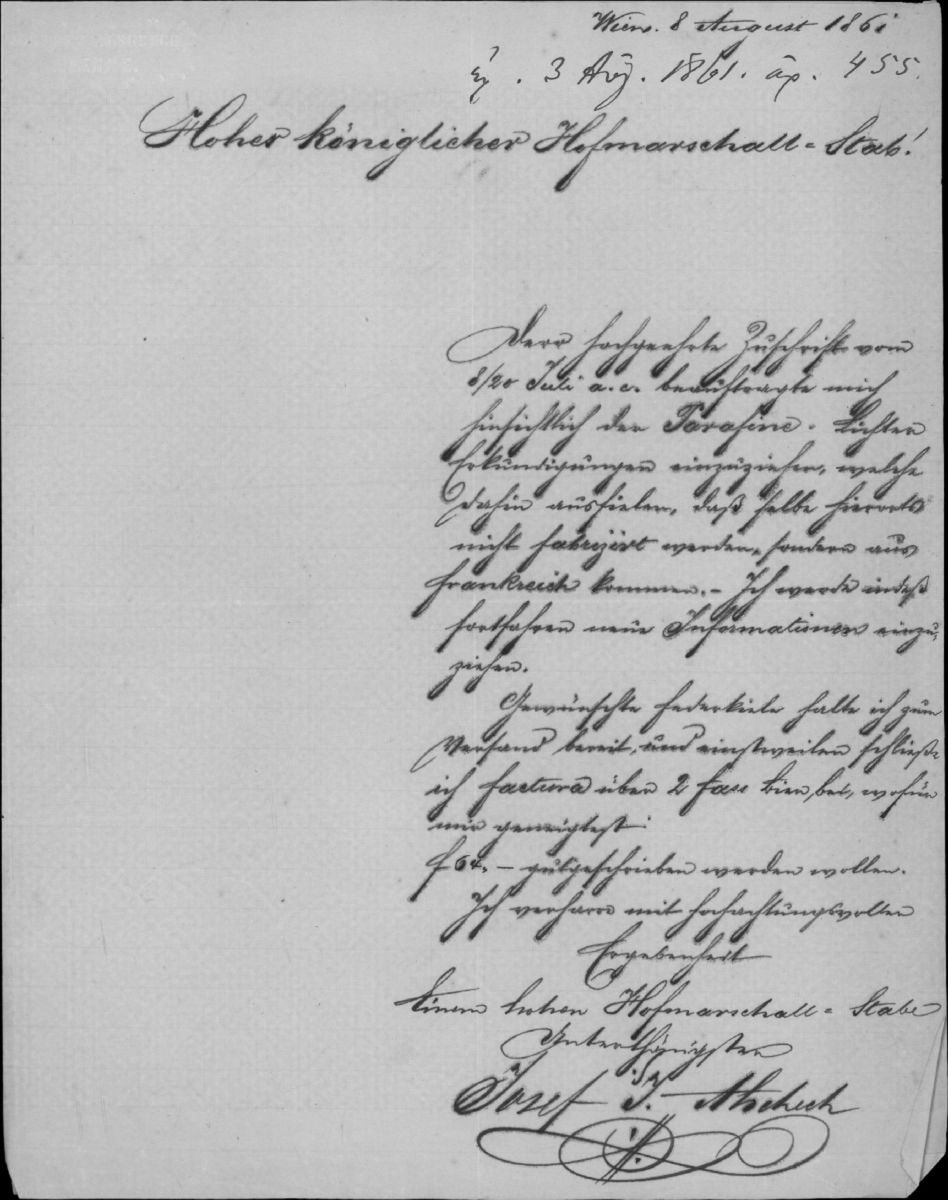 Wien. 8 August 1861
3 Aug. 1861. 455.
Hoher königlicher Hofmarschall = Stab!
Derr hochgeehrte Zuschrift vom
8/20 Juli a. c. beauftragte mich
hinsichtlich der Parafine - Lichter
Erkündigungen einzuziehen, welche
dahin ausfielen, daß selbe hierorts
nicht fabrizirt werden, sondern aus
Frankreich kommen. – Ich werde indeß
fortfahren neue Informationen einzu-
ziehen.
Gewünschte Federkiele halte ich zum
Versand bereit, und einstweilen schließe
ich Factura über 2 Fass Bier bei, wofür
mir geneigtest
f 64. – gutgeschrieben werden wollen.
Ich verharre mit hochachtungsvollen
Ergebenheit
Einem hohen Hofmarschall = Stabe
Unterthänigster
Josef J.